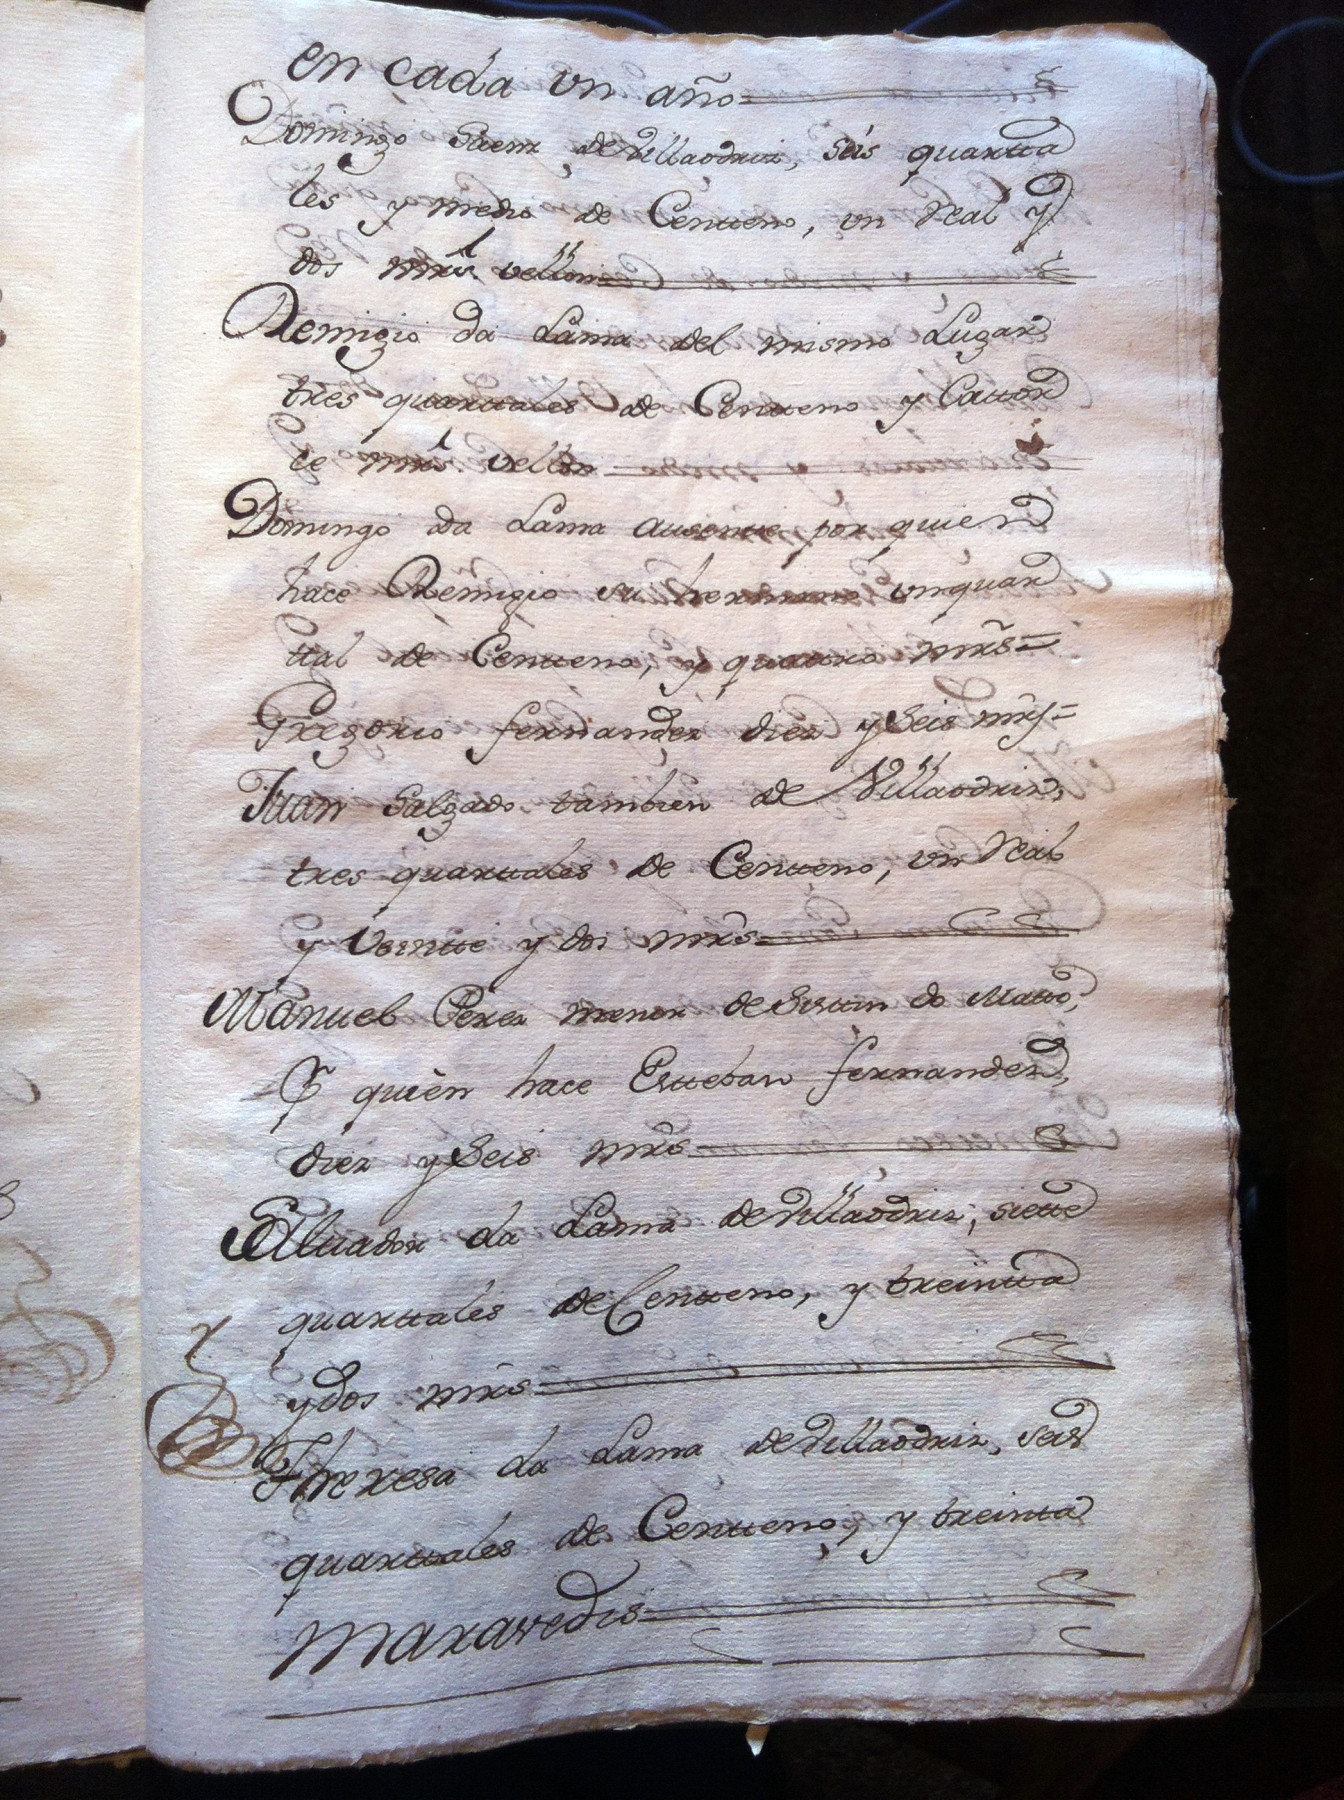 en cada vn año
Domingo Saenz de Villaodriz, seis quartta
les y medio de Centteno, vn Real y
dos mrs. vellon
Remigio da Lama del mismo Lugar
tres quarttales de Centteno y Cattor
ce mrs vellon
Domingo da Lama ausentte por quien
hace Remigio su hermano vn quar
ttal de Centteno, y quattro mrs=
Gregorio fernandez diez y Seis mrs=
Juan Salgado tambien de Villaodriz,
tres quarttales de Centteno, vn Real
y Veintte y dos mrs
Manuel Perez menor de do Matto,
P quien hace Estteban fernandez,
diez y Seis mrs
Saluador da Lama de Villaodriz, siette
quarttales de Centteno, y treintta
y dos mrs
Theresa da Lama de Villaodriz, seis
quarttales de Centteno, y treinta
Maravedis